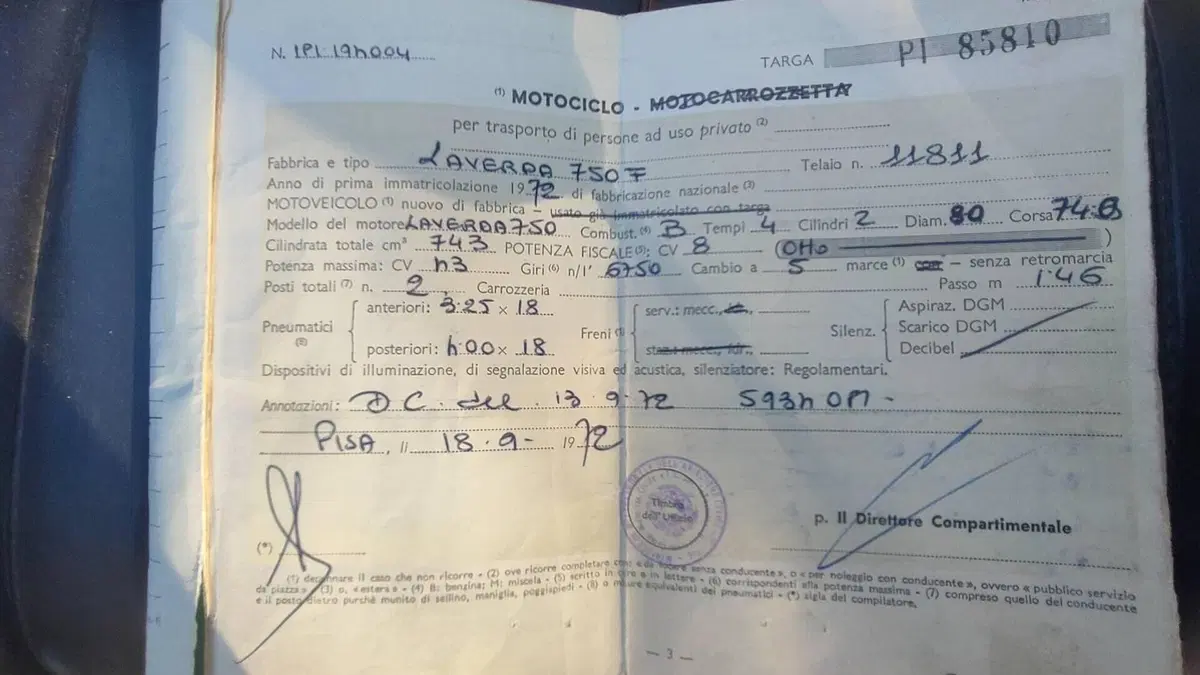 N. IPI 19h004
TARGA PI 85810
(1) MOTOCICLO - MOTOCARROZZETTA
per trasporto di persone ad uso privato (2)
Fabbrica e tipo LAVERDA 750 F Telaio n. 11811
Anno di prima immatricolazione 1972 di fabbricazione nazionale (3)
MOTOVEICOLO (1) nuovo di fabbrica – usato già immatricolato con targa
Modello del motore LAVERDA 750 Combust. (4) B Tempi 4 Cilindri 2 Diam. 80 Corsa 74
Cilindrata totale cm³ 743 POTENZA FISCALE (5): CV 8 (Otto )
Potenza massima: CV h3 Giri (6) n/1' 6750 Cambio a 5 marce (1) – senza retromarcia
Posti totali (7) n. 2 Carrozzeria Passo m 1.46
Pneumatici (8) anteriori: 3.25 x 18 Freni (1) serv.: mecc., Silenz. Aspiraz. DGM
Scarico DGM
posteriori: h.00 x 18 staz.: mecc., idr., Decibel
Dispositivi di illuminazione, di segnalazione visiva ed acustica, silenziatore: Regolamentari.
Annotazioni: D C. del 13.9.72 593h OM -
PISA, lì 18.9- 1972
Timbro
dell'Ufficio
p. Il Direttore Compartimentale
(*)
(1) depennare il caso che non ricorre - (2) ove ricorre completare con: « da locare senza conducente », o « per noleggio con conducente », ovvero « pubblico servizio
da piazza » (3) o, « estera » - (4) B: benzina; M: miscela - (5) scritto in cifre e in lettere - (6) corrispondenti alla potenza massima - (7) compreso quello del conducente
e il posto dietro purchè munito di sellino, maniglia, poggiapiedi - (8) o misure equivalenti dei pneumatici - (*) sigla del compilatore.
— 3 —